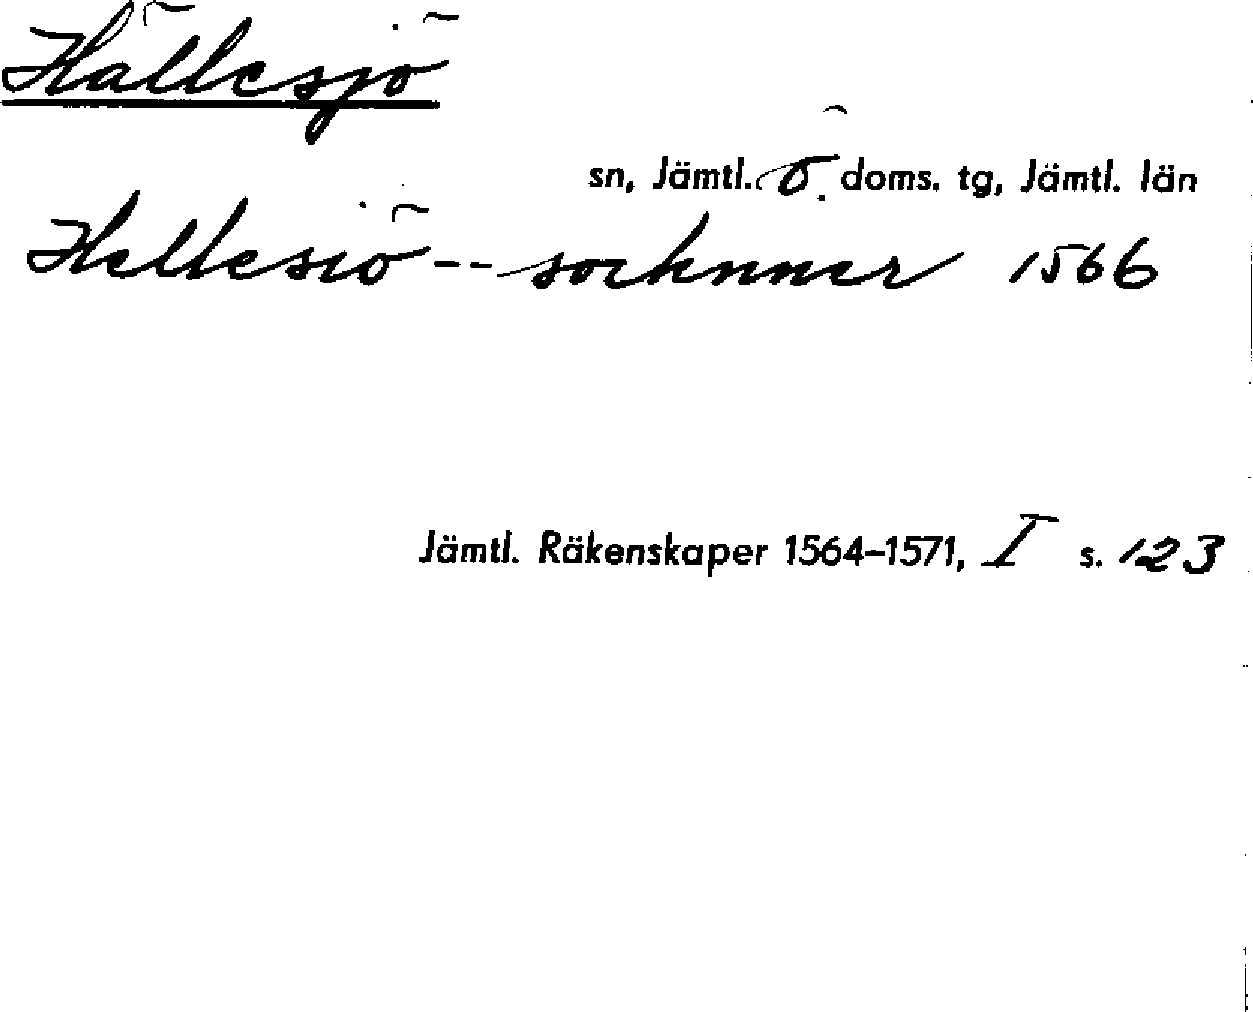 Hällesjö
sn, Jämtl. ö. doms. tg, Jämtl. län
Hellesiö -- socknner 1566
Jämtl. Räkenskaper 1564–1571, I s. 123